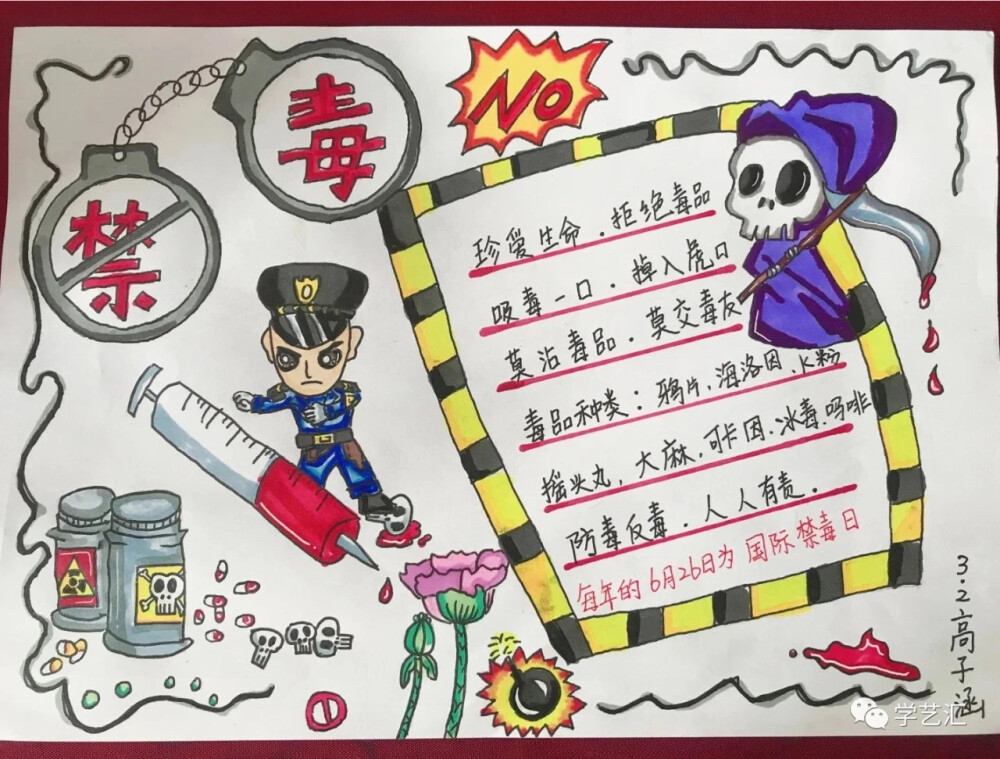 禁毒
NO
珍爱生命．拒绝毒品
吸毒一口．掉入虎口
莫沾毒品．莫交毒友
毒品种类：鸦片．海洛因．K粉
摇头丸，大麻．可卡因．冰毒．吗啡
防毒反毒．人人有责．
每年的6月26日为国际禁毒日
3.2高子涵
学艺汇